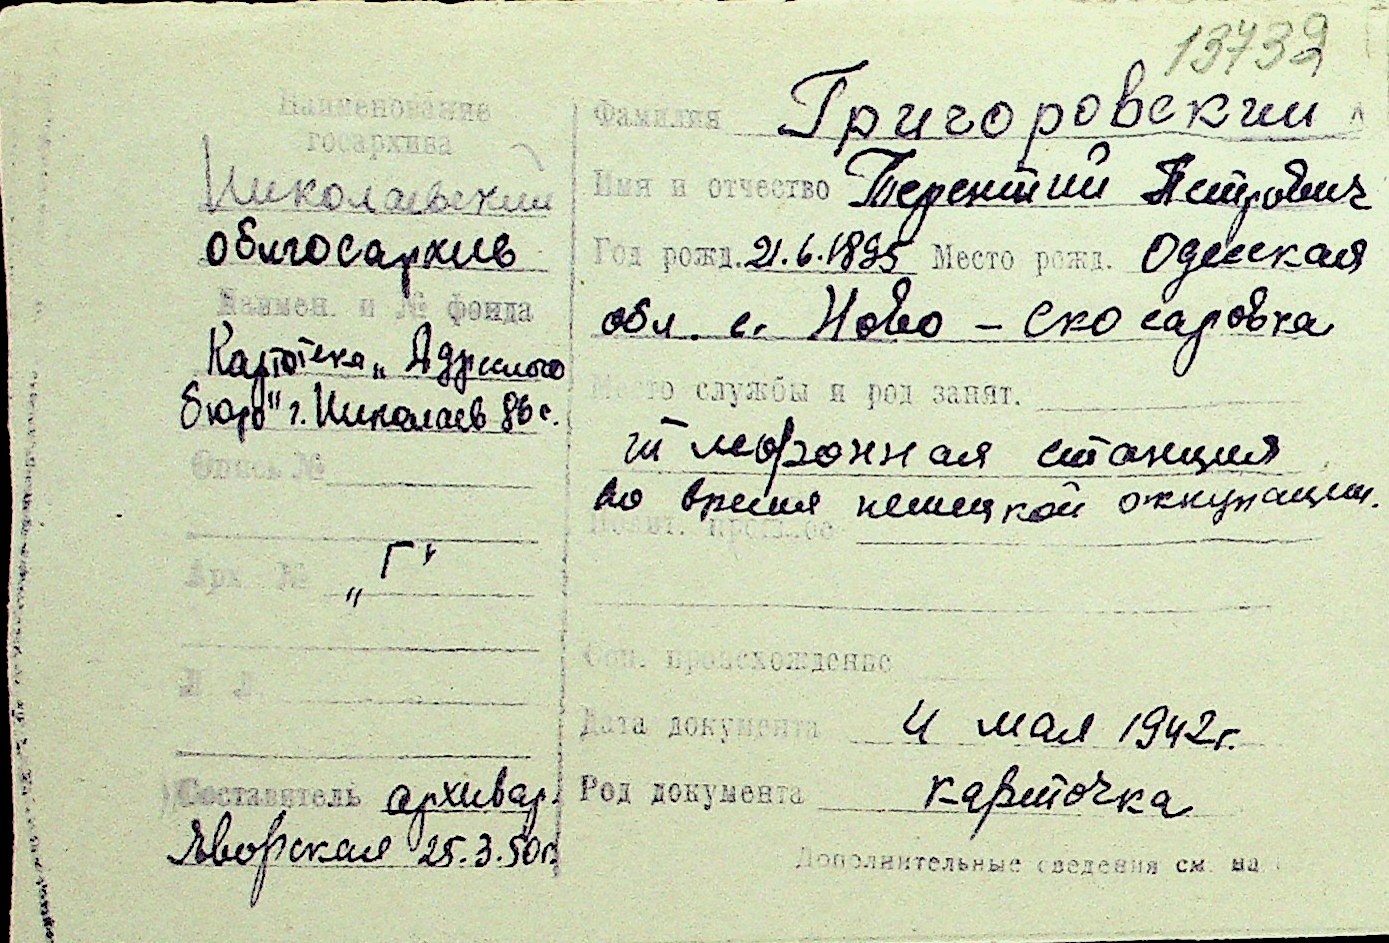 13739
Наименование
госархива
Николаевский
облгосархив
Наимен. и № фонда
Картотека „Адресного
бюро" г. Николаев
Опись №
Арх. №
„Г"
Составитель архивар.
Яворская 25.3.50г.
Фамилия Григоровский
Имя и отчество Терентий Петрович
Год рожд. 21.6.1895 Место рожд. Одесская
обл. с. Ново-Скосаровка
Место службы и род занят.
станция
во время немецкой оккупации.
Полит. прошлое
Соц. происхождение
Дата документа 4 мая 1942г.
Род документа карточка
Дополнительные сведения см. на